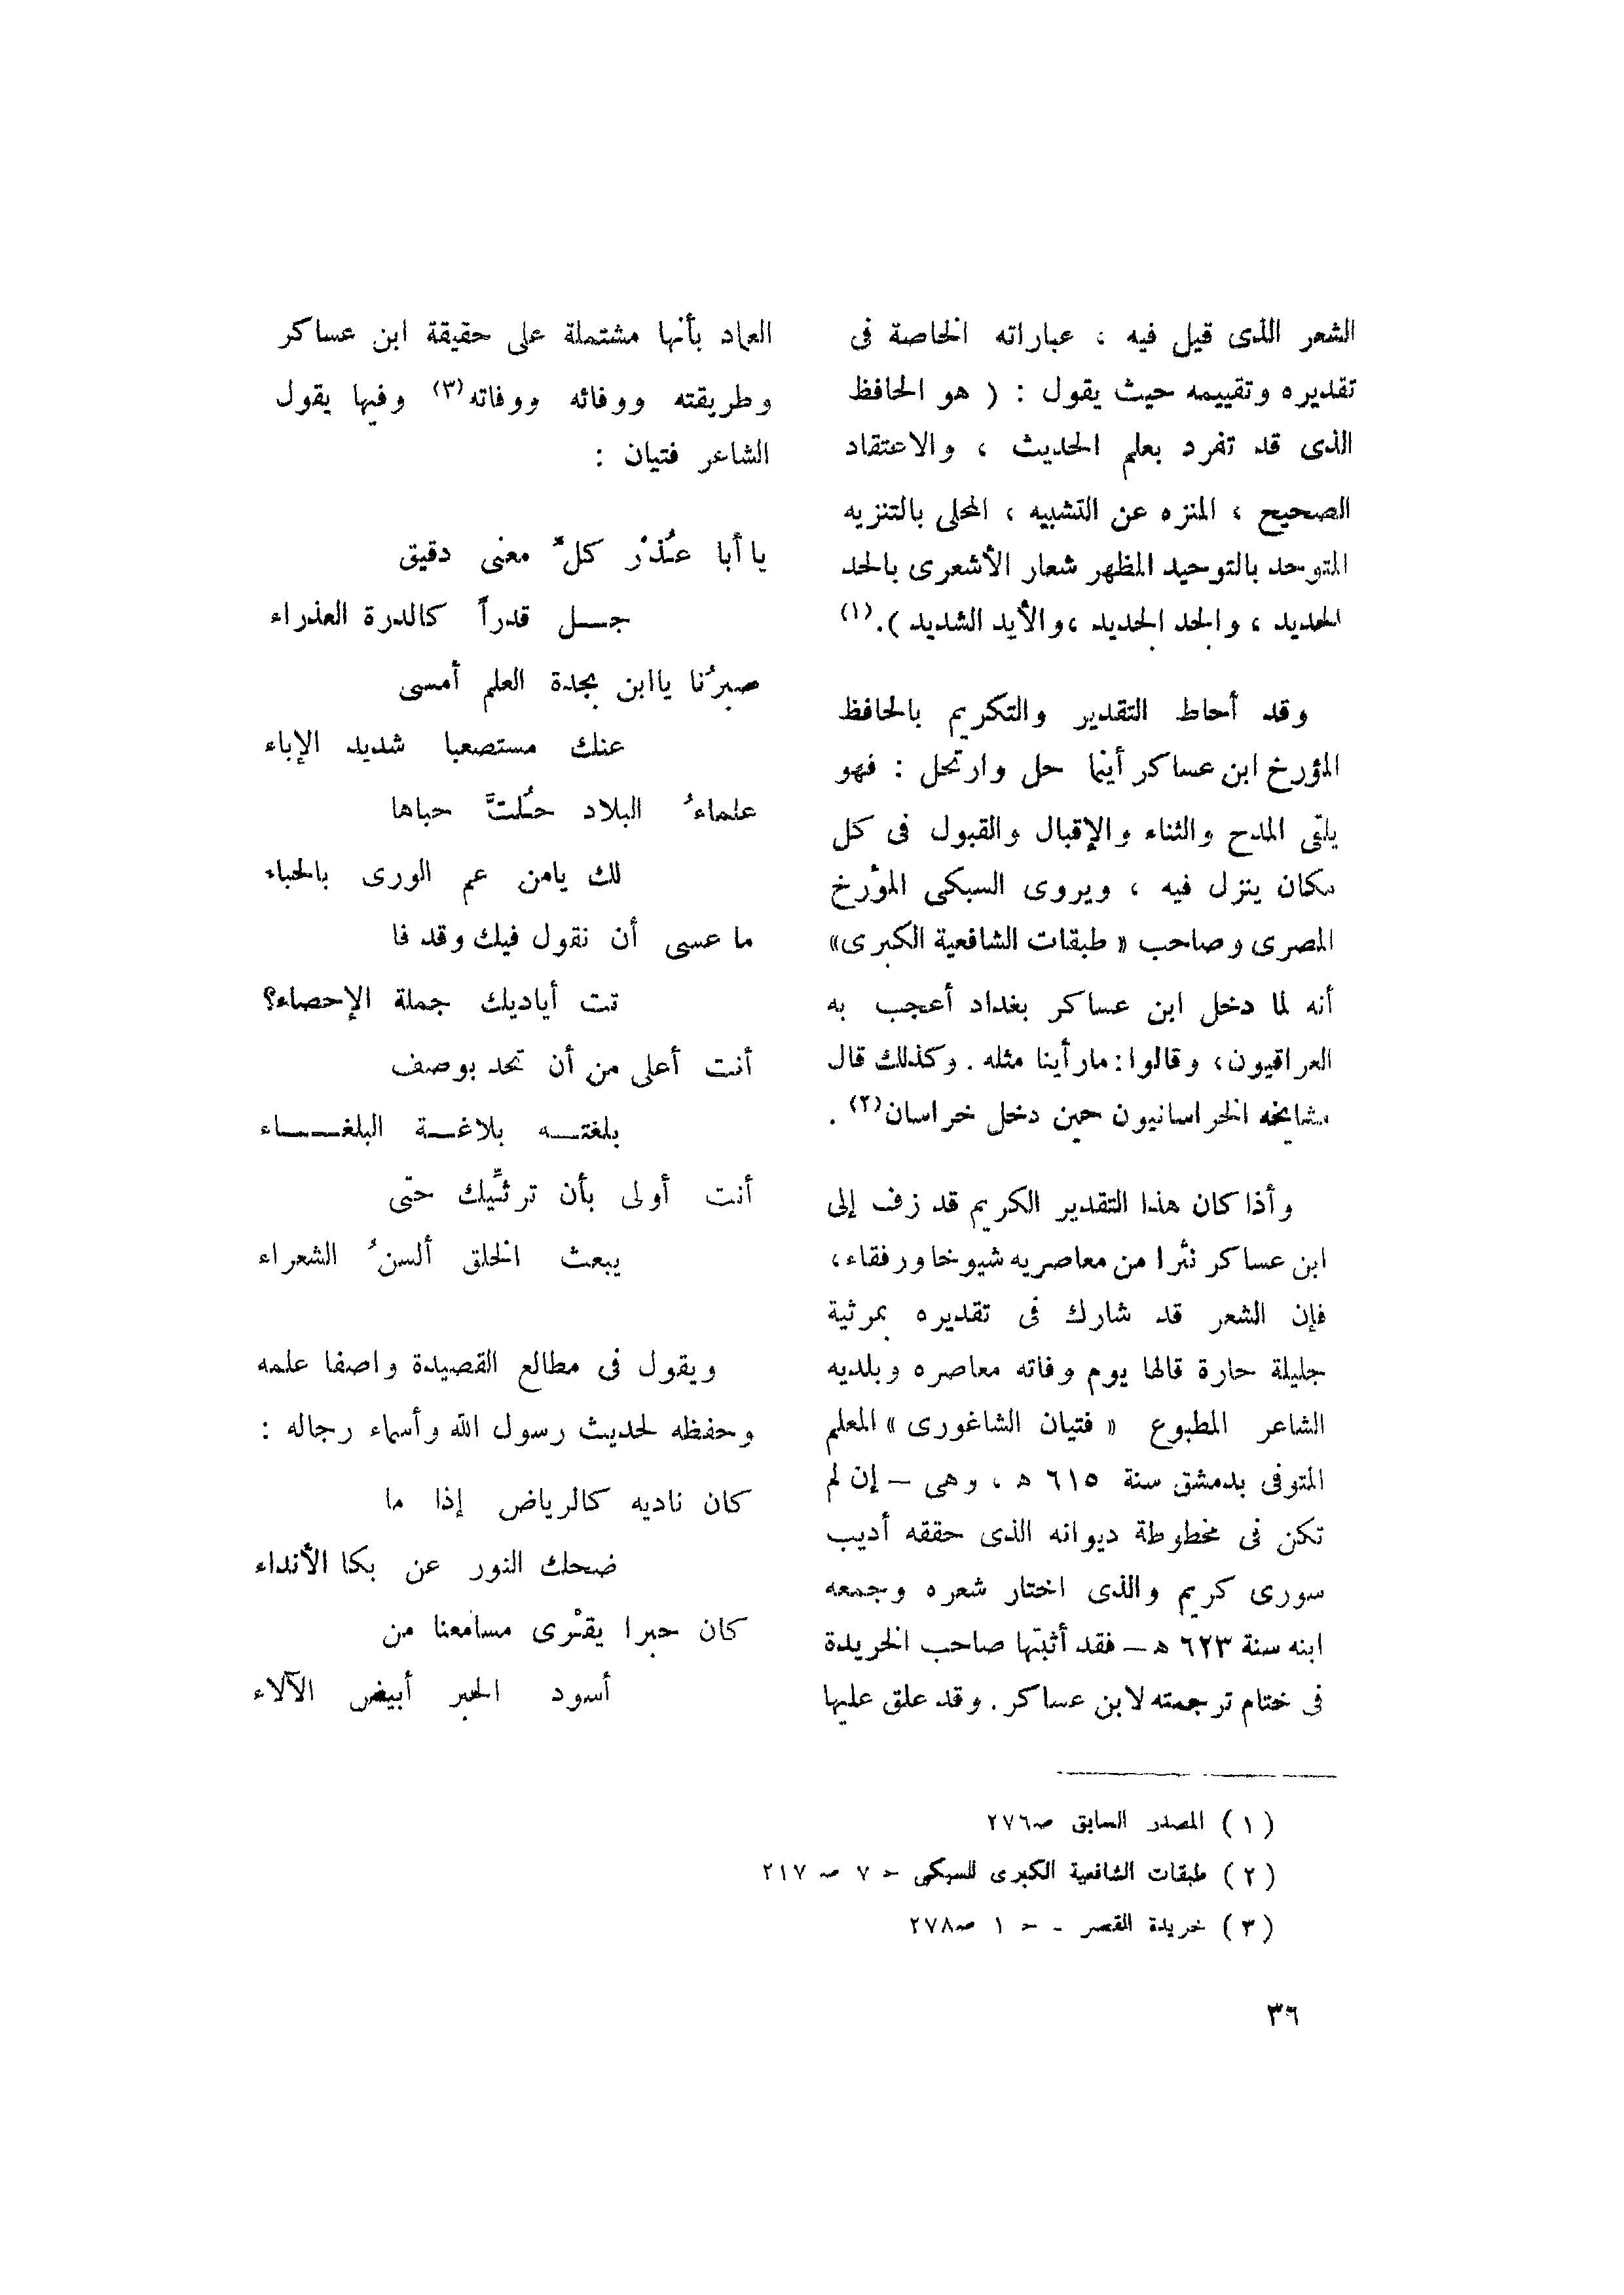 الشعر الذى قيل فيه ، عباراته الخاصة فى
تقديره وتقييمه حيث يقول : ( هو الحافظ
الذى قد تفرد بعلم الحديث ، والاعتقاد
الصحيح ، المنزه عن التشبيه ، المحلى بالتنزيه
المتوحد بالتوحيد المظهر شعار الأشعرى بالحد
الحديد ، والجد الجديد ، والأيد الشديد ).(١)
وقد أحاط التقدير والتكريم بالحافظ
المؤرخ ابن عساكر أينما حل وارتحل : فهو
يلقى المدح والثناء والإقبال والقبول فى كل
مكان ينزل فيه ، ويروى السبكى المؤرخ
المصرى وصاحب « طبقات الشافعية الكبرى»
أنه لما دخل ابن عساكر بغداد أعجب به
العراقيون، وقالوا: مارأينا مثله . وكذلك قال
مشايخه الخراسانيون حين دخل خراسان(٢) .
وأذا كان هذا التقدير الكريم قد زف إلى
ابن عساكر نثرا من معاصريه شيوخا ورفقاء،
فإن الشعر قد شارك فى تقديره بمرثية
جليلة حارة قالها يوم وفاته معاصره وبلديه
الشاعر المطبوع « فتيان الشاغورى» المعلم
المتوفى بدمشق سنة ٦١٥ ه ، وهى — إن لم
تكن فى مخطوطة ديوانه الذى حققه أديب
سورى كريم والذى اختار شعره وجمعه
ابنه سنة ٦٢٣ ه — فقد أثبتها صاحب الخريدة
فى ختام ترجمته لابن عساكر . وقد علق عليها
العماد بأنها مشتملة على حقيقة ابن عساكر
وطريقته ووفائه ووفاته(٣) وفيها يقول
الشاعر فتيان :
يا أبا عُذْر كلّ معنى دقيق
جـــل قدراً كالدرة العذراء
صبرُنا ياابن بجدة العلم أمسى
عنك مستصعبا شديد الإباء
علماءُ البلاد حُلتَّ حباها
لك يامن عم الورى بالحباء
ما عسى أن نقول فيك وقد فا
تت أياديك جملة الإحصاء؟
أنت أعلى من أن تحد بوصف
بلغتـــه بلاغـــة البلغـــاء
أنت أولى بأن ترثِّيك حتى
يبعث الخلق ألسنُ الشعراء
ويقول فى مطالع القصيدة واصفا علمه
وحفظه لحديث رسول الله وأسماء رجاله :
كان ناديه كالرياض إذا ما
ضحك النور عن بكا الأنداء
كان حبرا يقْرى مسامعنا من
أسود الحبر أبيض الآلاء
( ١ ) المصدر السابق صـ٢٧٦
( ٢ ) طبقات الشافعية الكبرى للسبكى حـ ٧ صـ ٢١٧
( ٣ ) خريدة القصر - حـ ١ صـ٢٧٨
٣٦